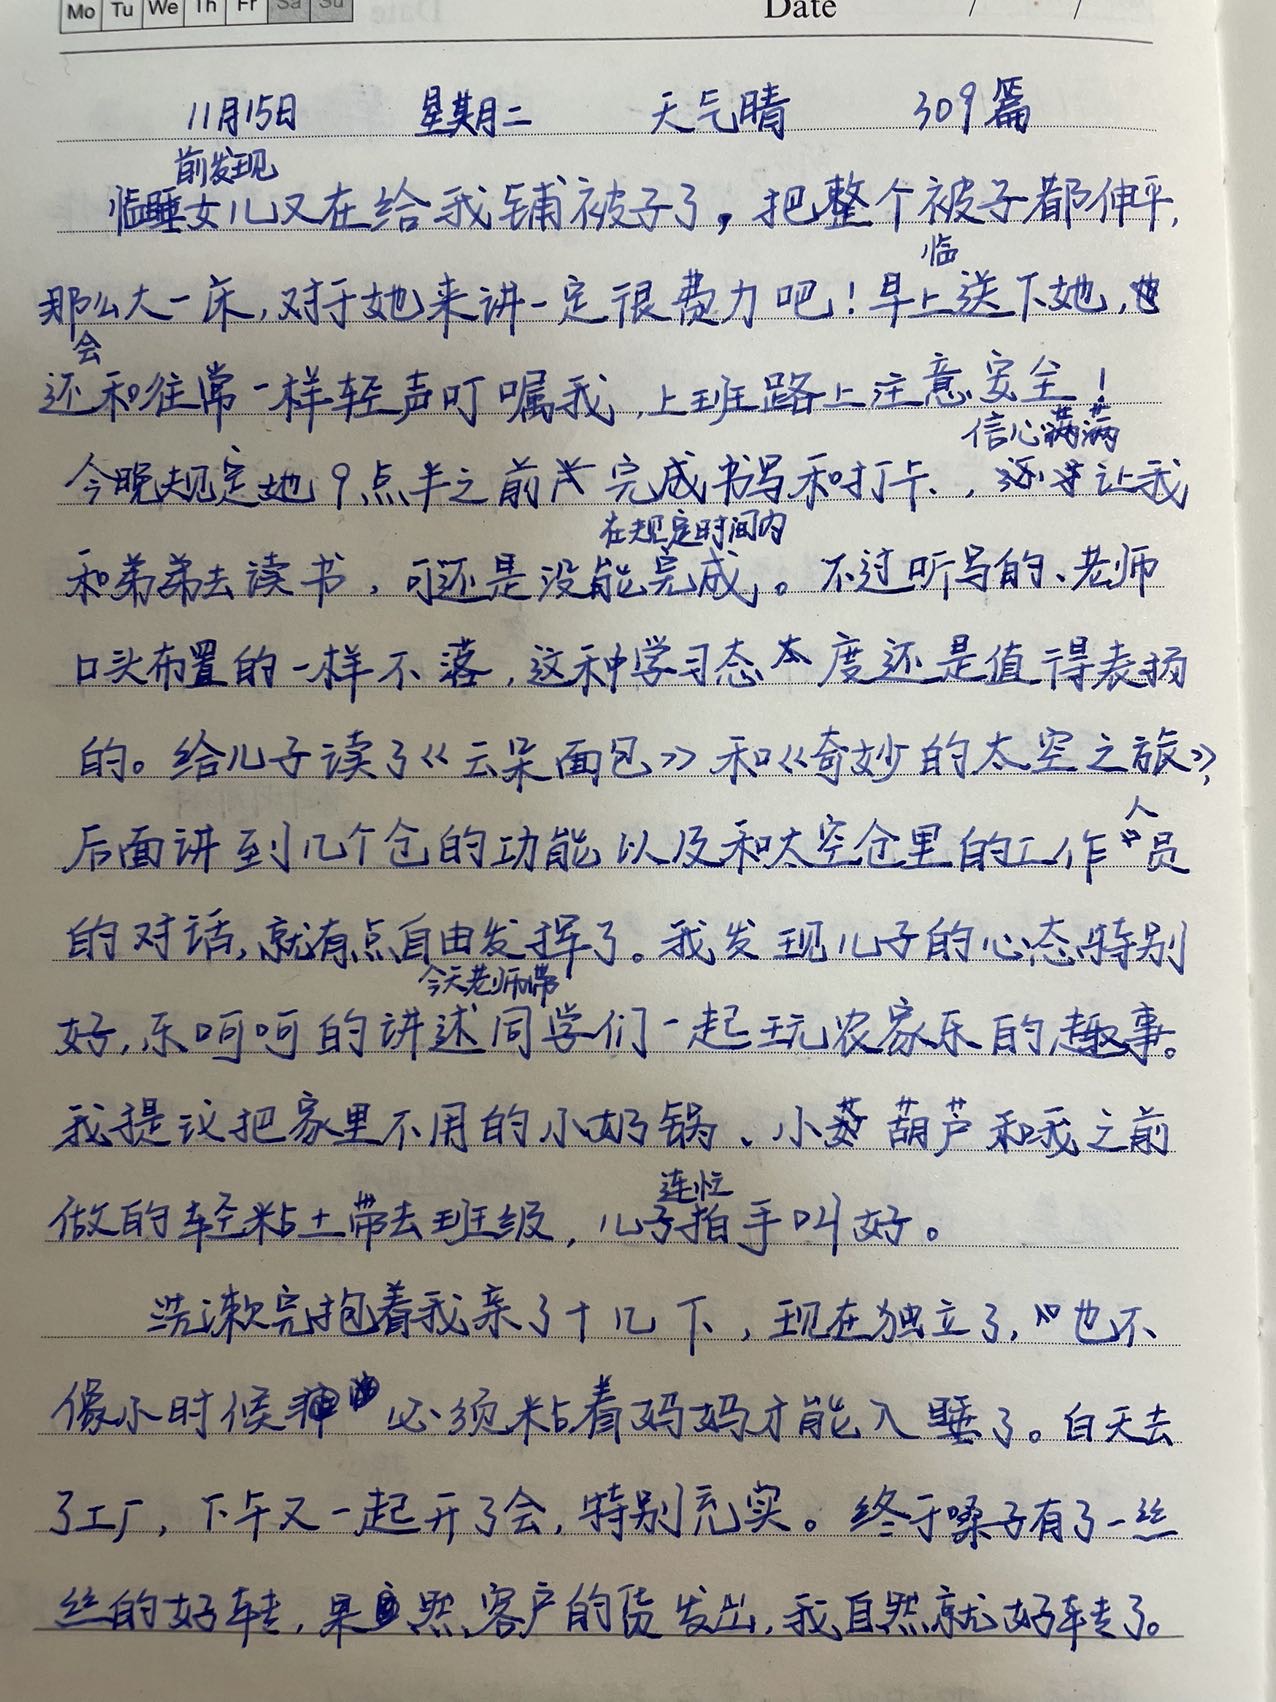 Mo Tu We Th Fr Sa Su Date / /
11月15日 星期二 天气晴 309篇
前发现
临睡女儿又在给我铺被子了,把整个被子都伸平,
临
那么大一床,对于她来讲一定很费力吧!早上送下她,她
会
还和往常一样轻声叮嘱我,上班路上注意安全!
信心满满
今晚规定她9点半之前完成书写和打卡,让我
在规定时间内
和弟弟去读书,可还是没能完成。不过听写的、老师
口头布置的一样不落,这种学习态度还是值得表扬
的。给儿子读了《云朵面包》和《奇妙的太空之旅》,
人
后面讲到几个仓的功能以及和太空仓里的工作员
的对话,就有点自由发挥了。我发现儿子的心态特别
今天老师带
好,乐呵呵的讲述同学们一起玩农家乐的趣事。
我提议把家里不用的小奶锅、小葫芦和我之前
连忙
做的轻粘土带去班级,儿子拍手叫好。
洗漱完抱着我亲了十几下,现在独立了,也不
像小时候必须粘着妈妈才能入睡了。白天去
了工厂,下午又一起开了会,特别充实。终于嗓子有了一丝
丝的好转,果然客户的货发出,我自然就好转了。